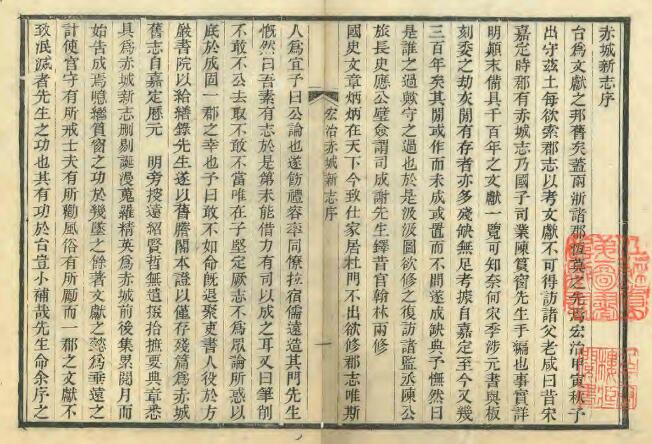 赤城新志序
台為文獻之邦舊矣蓋兩浙諸郡恆莫之先焉宏治甲寅秋予
出守茲土每欲索郡志以考文獻不可得訪諸父老咸曰昔宋
嘉定時郡有赤城志乃國子司業陳篔窗先生手編也事實詳
明顛末備具千百年之文獻一覽可知奈何宋季涉元書與板
刻委之劫灰閒有存者亦多殘缺無足考據自嘉定至今又幾
三百年矣其閒或作而未成或置而不問遂成缺典予憮然曰
是誰之過歟守之過也於是汲汲圖欲修之復訪諸監丞陳公
旅長史應公璧僉謂司成謝先生鐸昔官翰林兩修
國史文章炳炳在天下今致仕家居杜門不出欲修郡志唯斯
宏治赤城新志序
一
人為宜予曰公論也遂飭禮容同僚拉宿儒遠造其門先生
慨然曰吾素有志於是第未能借力有司以成之耳又曰筆削
不敢不公去取不敢不當唯在子堅定厥志不為眾論所惑以
底於成固一郡之幸也予曰敢不如命既退聚吏書人役於方
嚴書院以給繕錄先生遂以舊謄閣本證以僅存殘篇為赤城
舊志自嘉定歷元　明旁搜遠紹賢哲無遺掇拾摭要典章悉
具為赤城新志刪剔誕漫蒐羅精英為赤城前後集累閱月而
始告成焉噫繼篔窗之功於幾墜之餘著文獻之懿為垂遠之
計使官守有所戒士夫有所勸風俗有所勵而一郡之文獻不
致泯滅者先生之功也其有功於台豈小補哉先生命余序之